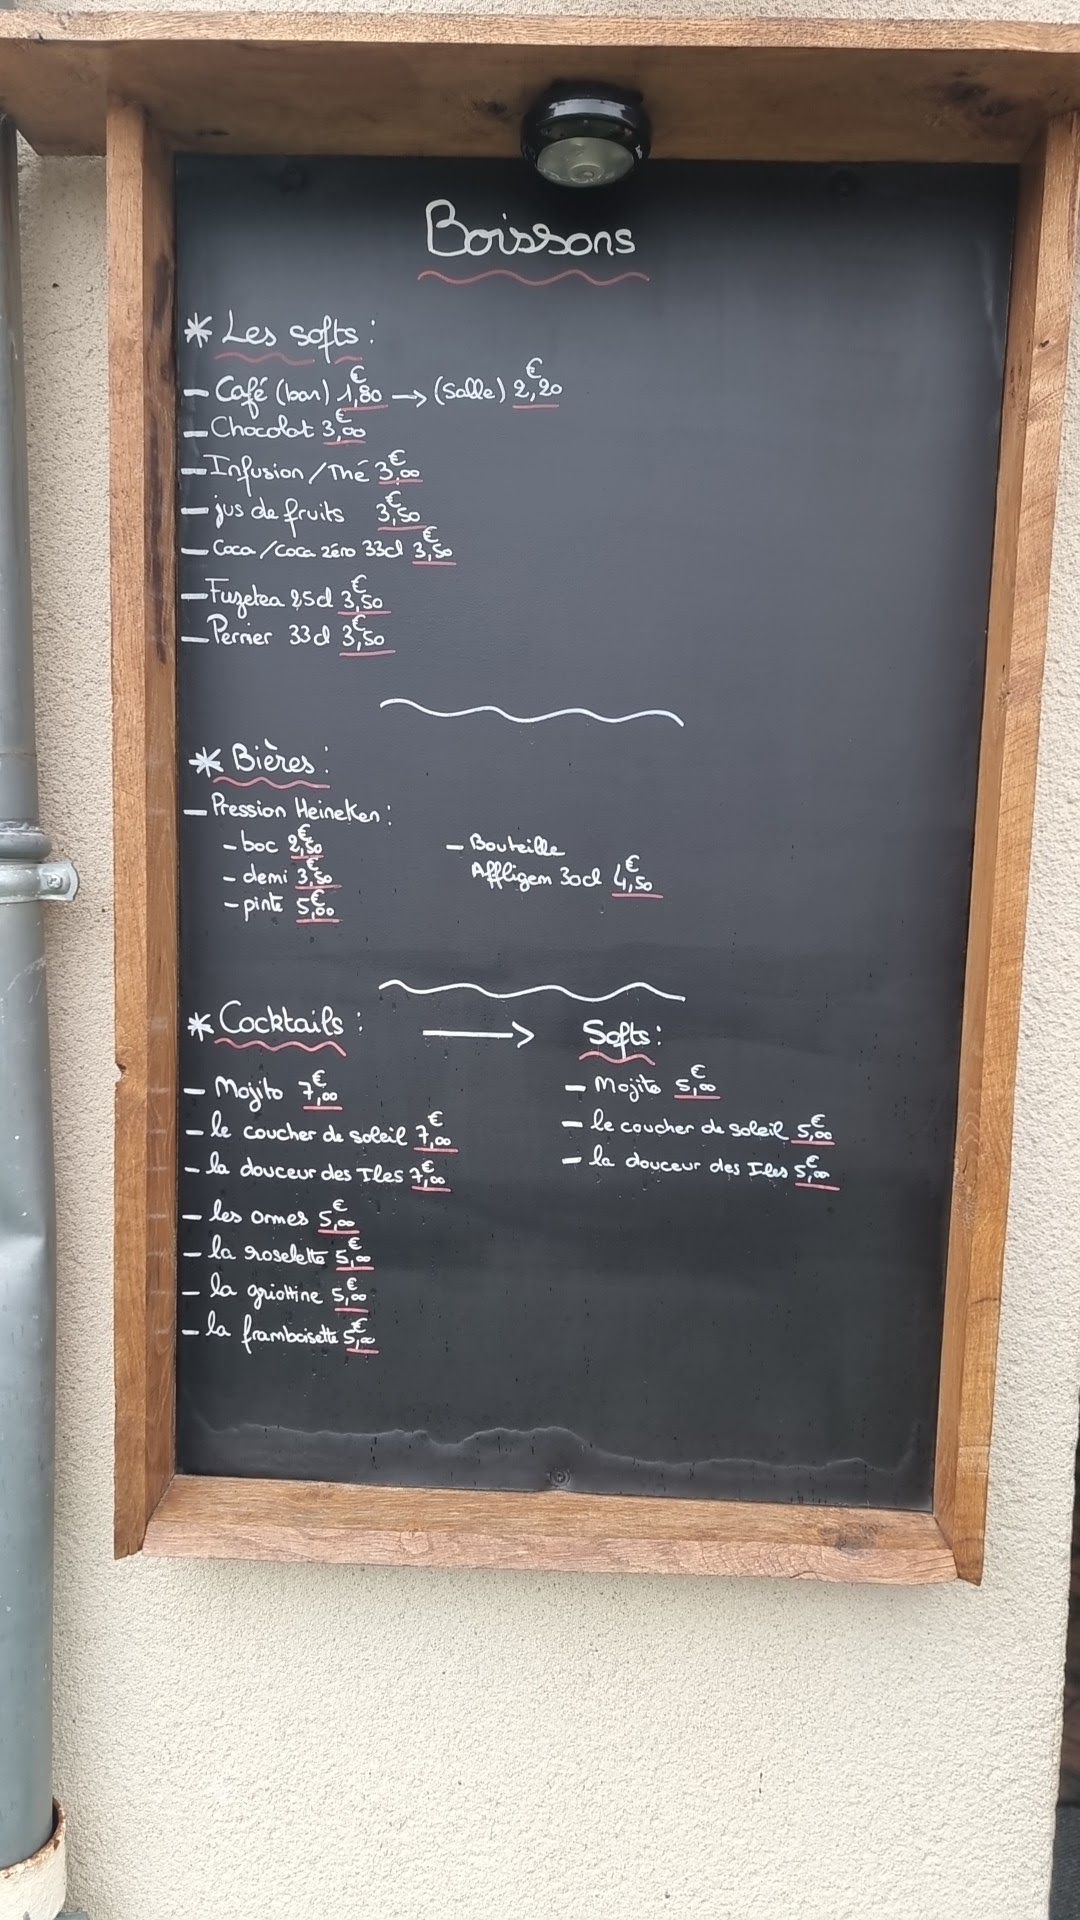 Boissons
* Les softs :
- Café (bar) 1,80€ → (Salle) 2,20€
- Chocolat 3,00€
- Infusion / Thé 3,00€
- jus de fruits 3,50€
- Coca / Coca zéro 33cl 3,50€
- Fuzetea 25cl 3,50€
- Perrier 33cl 3,50€
* Bières :
- Pression Heineken :
- boc 2,50€
- demi 3,50€
- pinte 5,00€
- Bouteille
Affligem 30cl 4,50€
* Cocktails : →
- Mojito 7,00€
- le coucher de soleil 7,00€
- la douceur des Iles 7,00€
- les ormes 5,00€
- la roselette 5,00€
- la griottine 5,00€
- la framboisette 5,00€
Softs :
- Mojito 5,00€
- le coucher de soleil 5,00€
- la douceur des Iles 5,00€